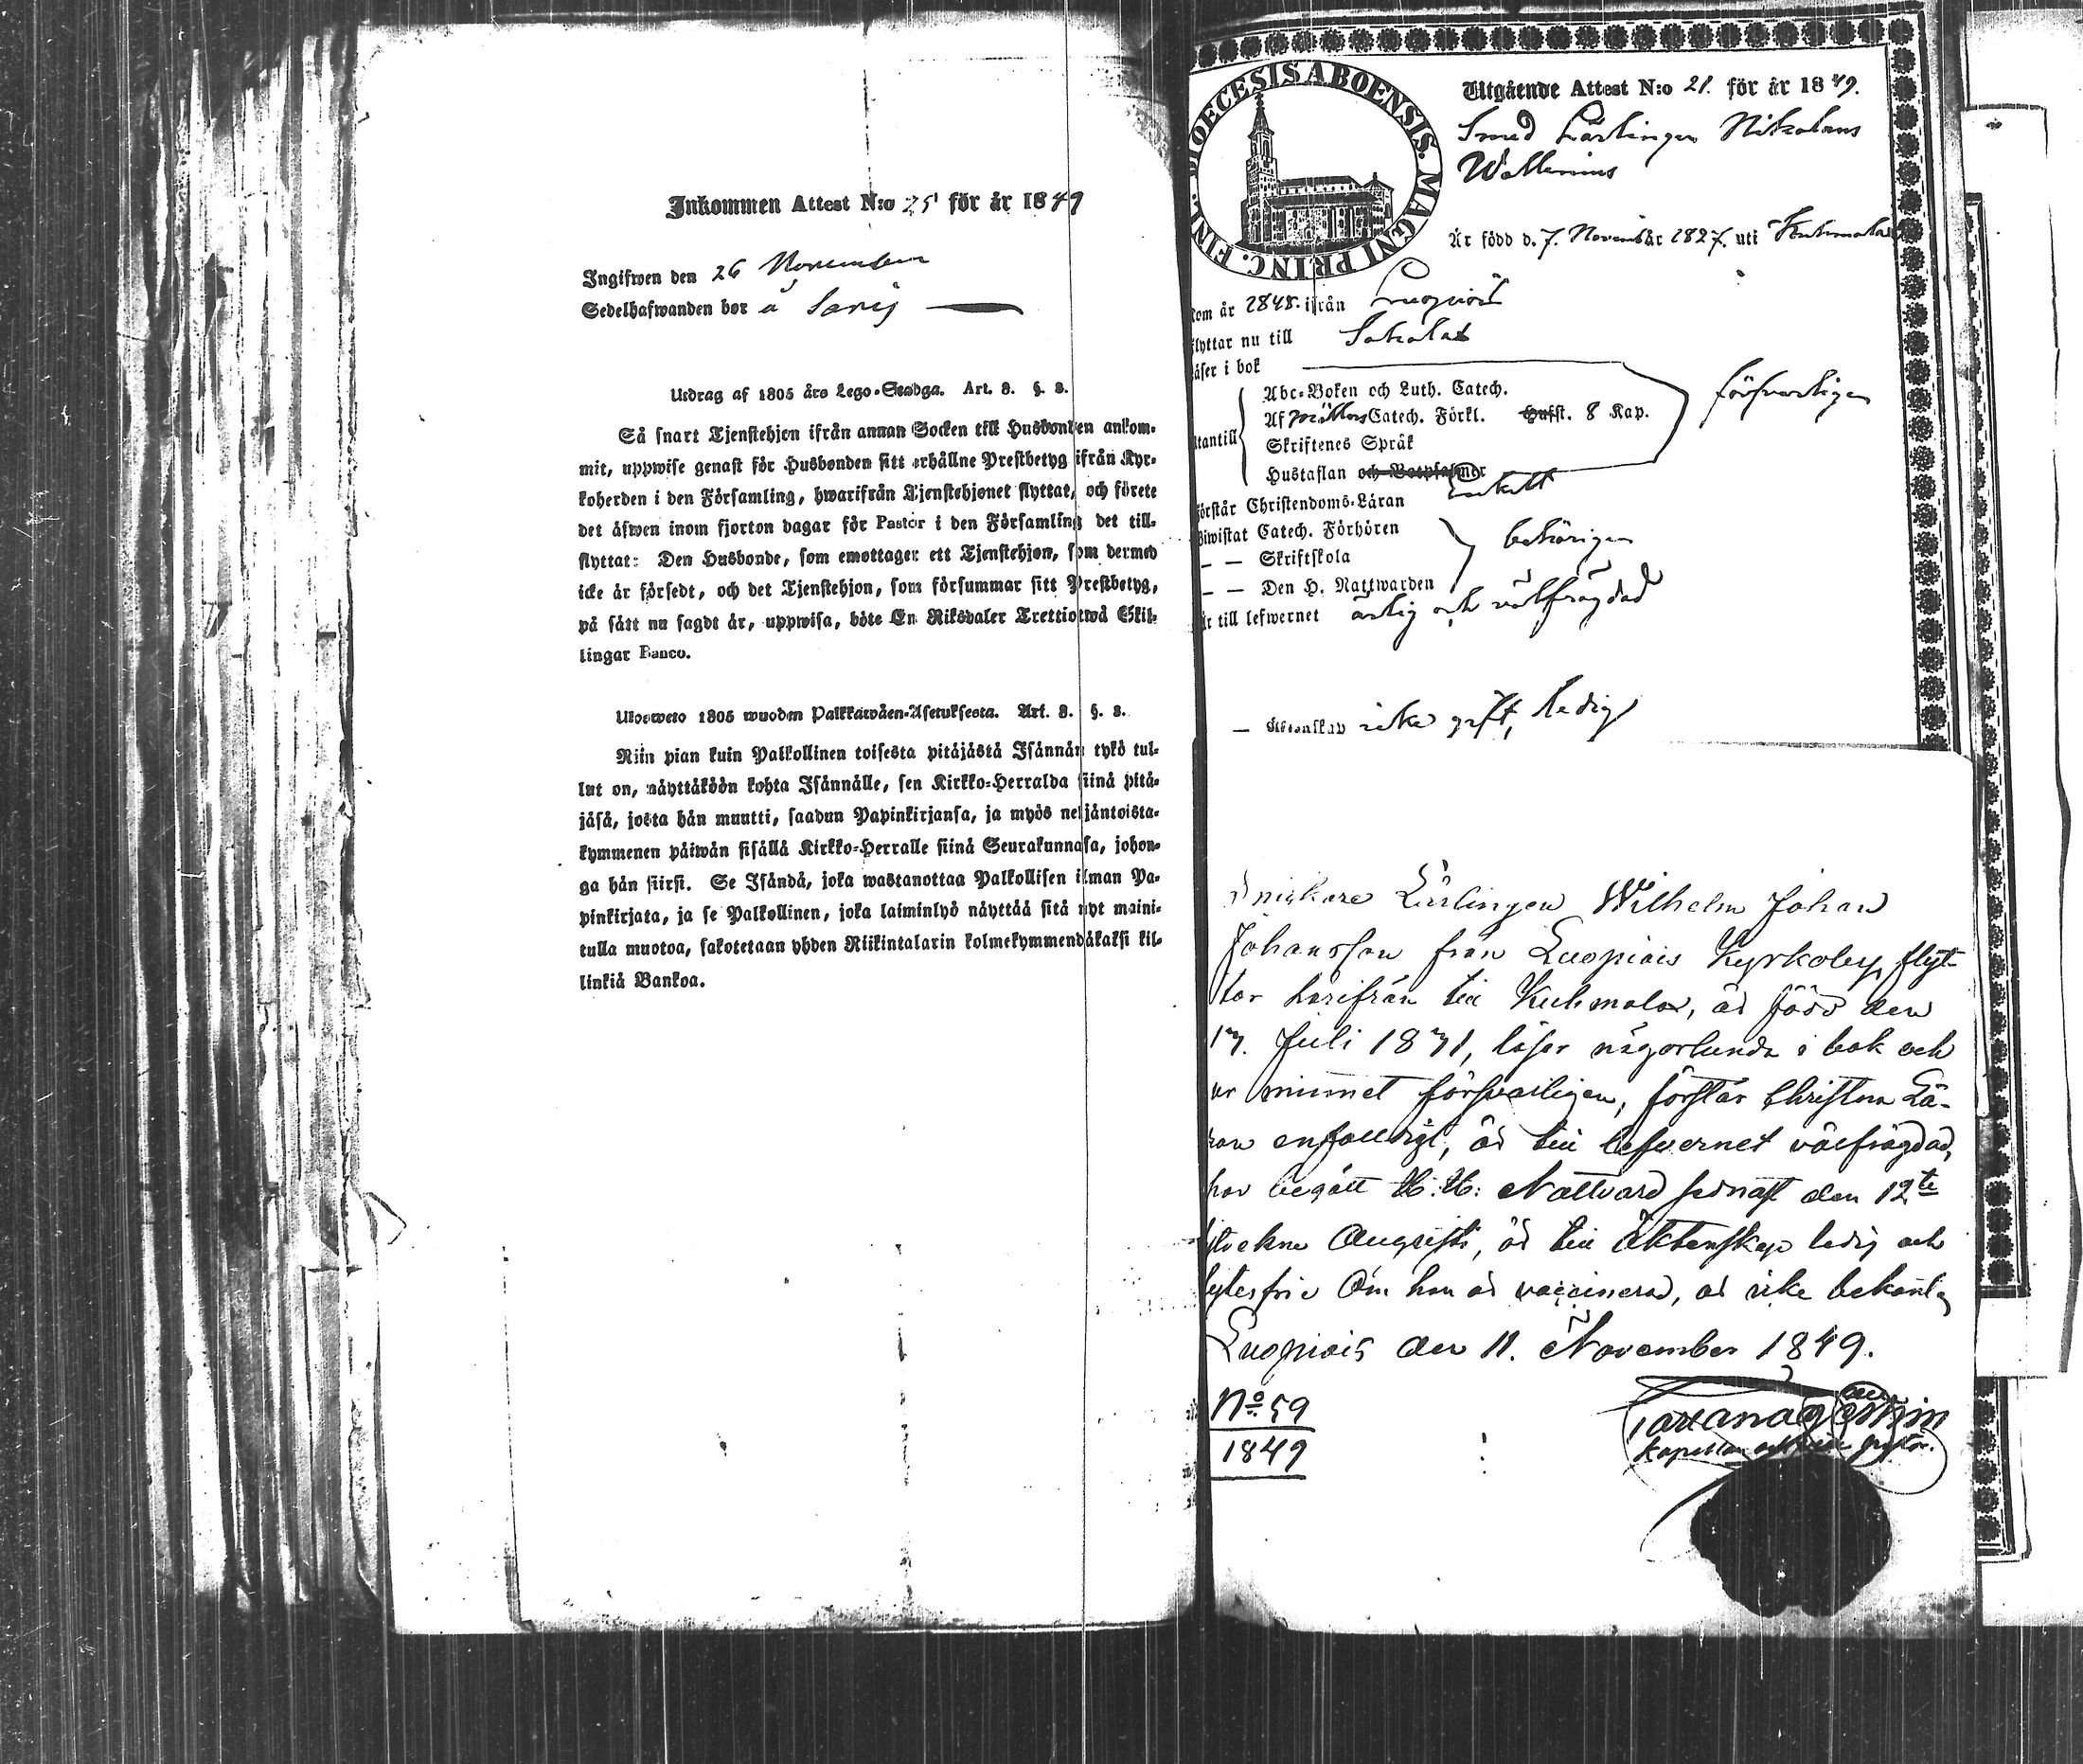 Inkommen Attest N:o 25 för år 1849
Ingifwen den 26 November
Sedelhafwanden bor å Sarij
Utdrag af 1805 års Lego-Stadga. Art. 8. §. 8.
Så snart Tjenstehjon ifrån annan Socken till Husbonden ankom-
mit, uppwise genast för Husbonden sitt erhållne Prestbetyg ifrån Kyr-
koherden i den Församling, hwarifrån Tjenstehjonet flyttat, och förete
det äfwen inom fjorton dagar för Pastor i den Församling det till-
flyttat: Den Husbonde, som emottager ett Tjenstehjon, som dermed
icke är försedt, och det Tjenstehjon, som försummar sitt Prestbetyg,
på sätt nu sagdt är, uppwisa, böte En Riksdaler Trettiotwå Skil-
lingar Banco.
Ulosweto 1805 wuoden Palkkawäen-Asetuksesta. Art. 8. §. 8.
Niin pian kuin Palkollinen toisesta pitäjästä Isännän tykö tul-
lut on, näyttäköön kohta Isännälle, sen Kirkko-Herralda siinä pitä-
jäsä, josta hän muutti, saadun Papinkirjansa, ja myös neljäntoista-
kymmenen päiwän sisällä Kirkko-Herralle siinä Seurakunnasa, johon-
ga hän siirsi. Se Isändä, joka wastanottaa Palkollisen ilman Pa-
pinkirjata, ja se Palkollinen, joka laiminlyö näyttää sitä nyt maini-
tulla muotoa, sakotetaan yhden Riikintalarin kolmekymmendäkaksi kil-
linkiä Bankoa.
DIOECESIS ABOENSIS. MAGNI PRINC. FINL.
Utgående Attest N:o 21. för år 1849.
Smed Lärlingen Nikolaus
Wallenius
Är född d. 7. November 1827. uti Kuhmalax
kom år 1848. ifrån Luopiois
flyttar nu till Sahalax
läser i bok
Abc-Boken och Luth. Catech.
Af Möllers Catech. Förkl. Hufst. 8 Kap.
försvarligen
utantill
Skriftenes Språk
Hustaflan och Botpsalmer
förstår Christendoms-Läran enkelt
Biwistat Catech. Förhören
— — Skriftskola
behörigen
— — Den H. Nattwarden
är till lefwernet ärlig och välfrägdad
— Äktenskap icke gift, ledig
Snickare Lärlingen Wilhelm Johan
Johansson från Luopiois Kyrkoby, flyt-
tar härifrån till Kuhmalax, är född den
17. Juli 1831, läser någorlunda i bok och
ur minnet försvarligen, förstår Christna Lä-
ran enfalldigt, är till lefvernet välfrägdad,
har begått H. H. Nattvard sednast den 12te
sistvekne Augusti, är till äktenskap ledig och
lytesfri. Om han är vaccinerad, är icke bekant.
Luopiois den 11. November 1849.
No 59
1849
Kapellan